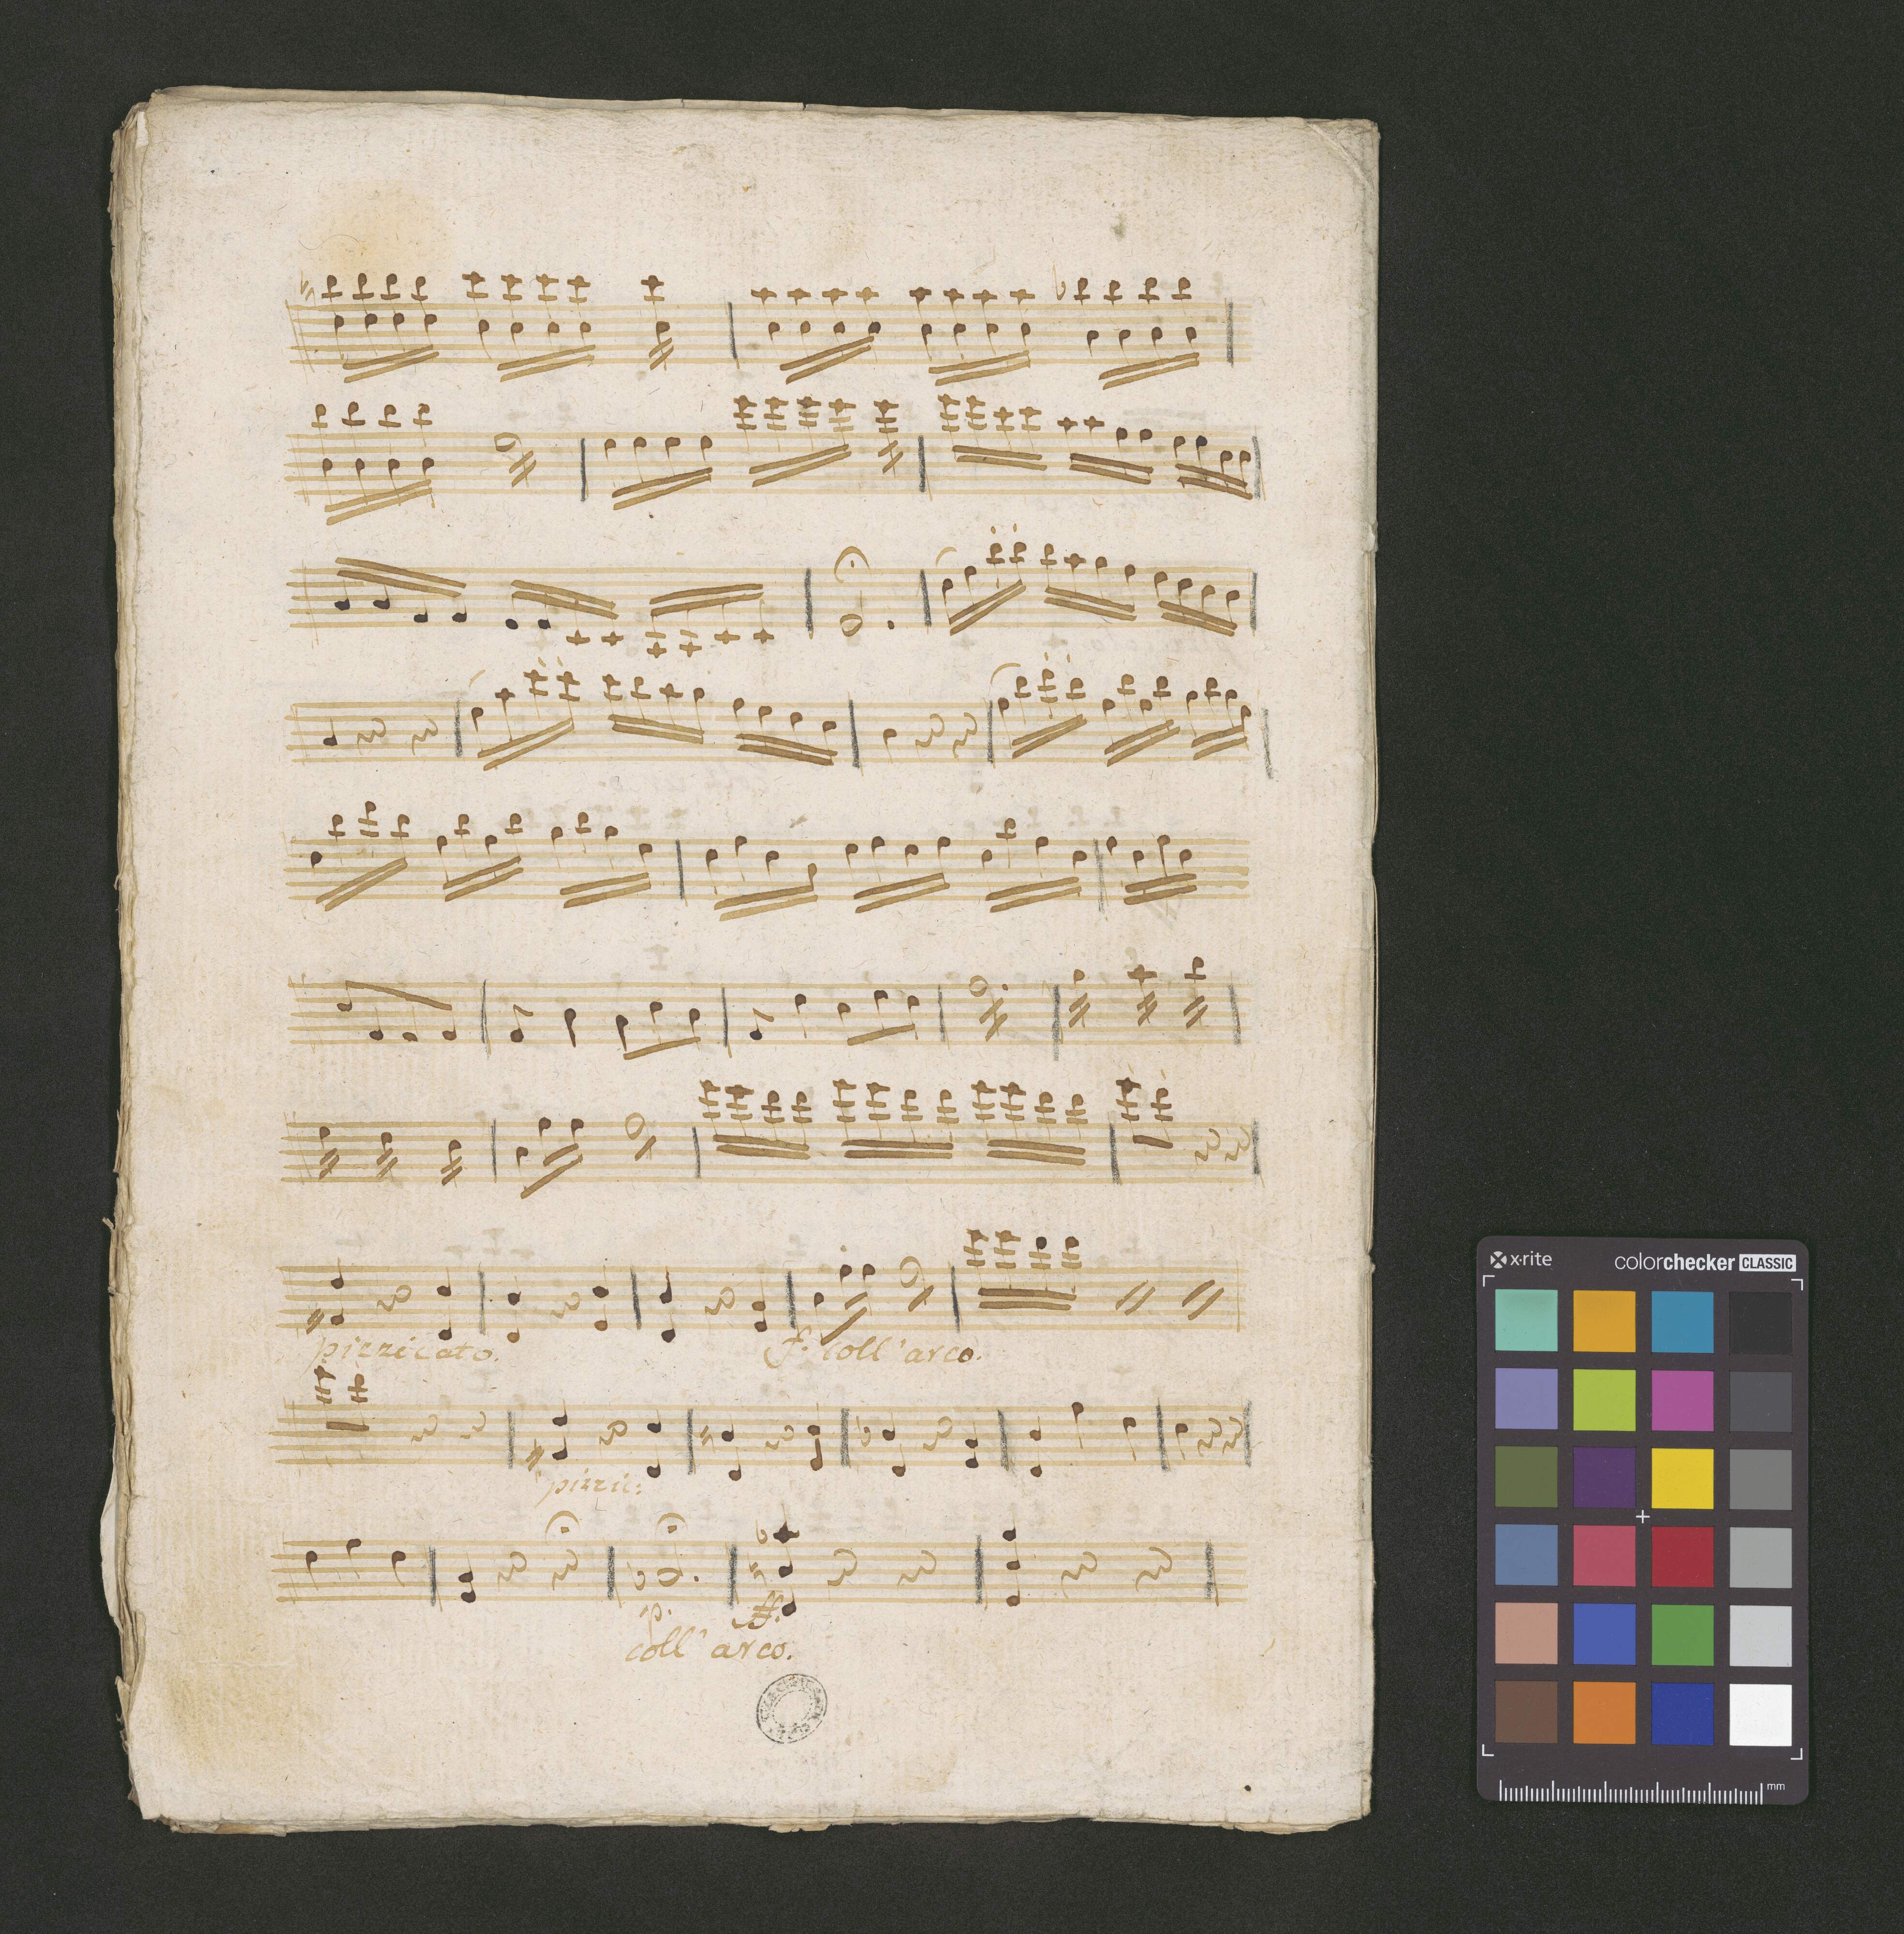 pizzicato.
f. coll' arco.
pizzic:
p. ff.
coll' arco.
x-rite colorchecker CLASSIC
mm